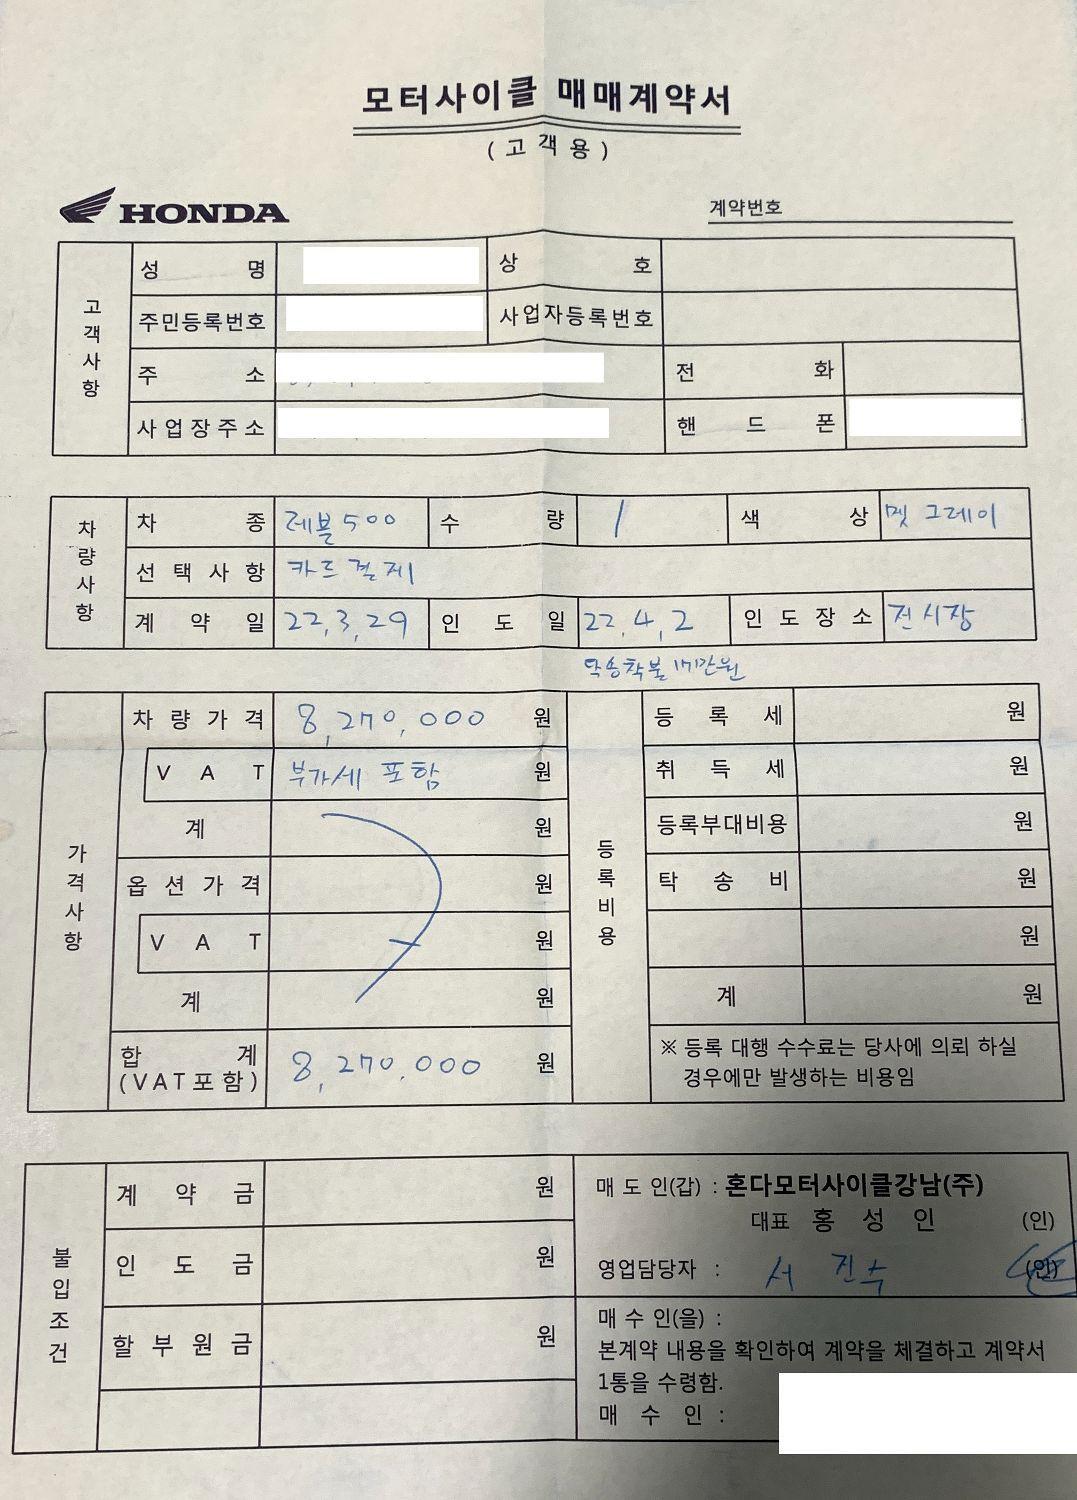 모터사이클 매매계약서
(고객용)
HONDA
계약번호
고객사항
성 명
상 호
주민등록번호
사업자등록번호
주 소
전 화
사업장주소
핸 드 폰
차량사항
차 종 레블 500 수 량 1 색 상 멧 그레이
선택사항 카드결제
계 약 일 22,3,29 인 도 일 22.4,2 인도장소 전시장
탁송착불 17만원
가격사항
차량가격 8,270,000 원
VAT 부가세 포함 원
계 원
옵션가격 원
VAT 원
계 원
합 계 (VAT포함) 8,270,000 원
등록비용
등 록 세 원
취 득 세 원
등록부대비용 원
탁 송 비 원
원
계 원
※ 등록 대행 수수료는 당사에 의뢰 하실
경우에만 발생하는 비용임
불입조건
계 약 금 원
인 도 금 원
할부원금 원
매 도 인(갑) : 혼다모터사이클강남(주)
대표 홍 성 인 (인)
영업담당자 : 서 진수 (인)
매 수 인(을) :
본계약 내용을 확인하여 계약을 체결하고 계약서
1통을 수령함.
매 수 인 :